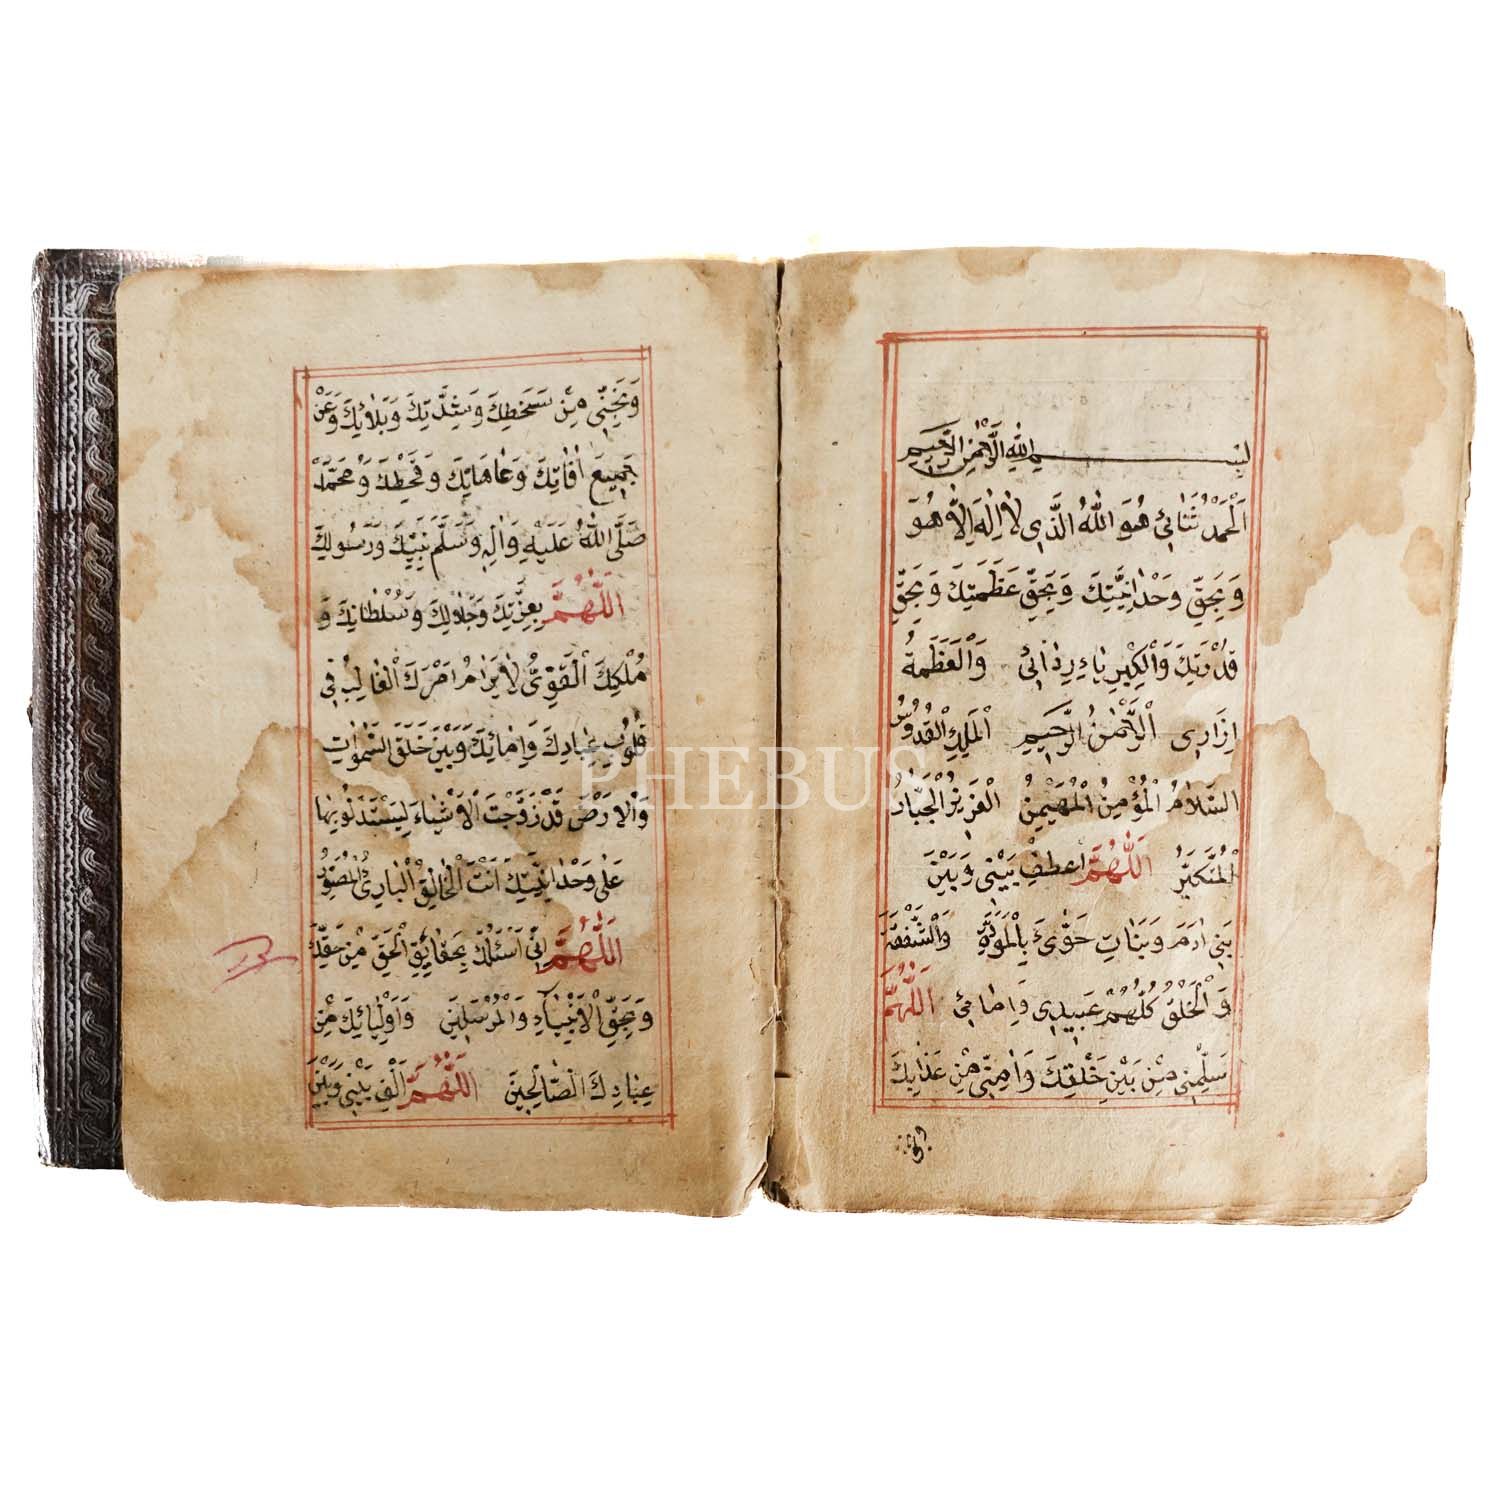 بسم الله الرحمن الرحيم
اَلْحَمْدُ ثَنَائِي هُوَ اللهُ الَّذِي لَا اِلٰهَ اِلَّا هُوَ
وَبِحَقِّ وَحْدَانِيَّتِكَ وَبِحَقِّ عَظَمَتِكَ وَبِحَقِّ
قُدْرَتِكَ وَالْكِبْرِيَاءِ رِدَائِي وَالْعَظَمَةُ
اِزَارِي الرَّحْمٰنُ الرَّحِيمِ الْمَلِكِ الْقُدُّوسُ
السَّلَامُ الْمُؤْمِنُ الْمُهَيْمِنُ الْعَزِيزُ الْجَبَّارُ
الْمُتَكَبِّرُ اَللّٰهُمَّ اعْطِفْ بَيْنِي وَبَيْنَ
بَنِي اٰدَمَ وَبَنَاتِ حَوّٰى بِالْمَوَدَّةِ وَالشَّفَقَةِ
وَالْخَلْقُ كُلُّهُمْ عَبِيدِي وَاِمَائِي اَللّٰهُمَّ
سَلِّمْنِي مِنْ بَيْنِ خَلْقِكَ وَاٰمِنِّي مِنْ عَذَابِكَ
وَنَجِّنِي مِنْ سَخَطِكَ وَشِدَّتِكَ وَبَلَائِكَ وَعَنْ
جَمِيعِ اٰفَاتِكَ وَعَاهَاتِكَ وَقَحْطِكَ وَمُحَمَّدْ
صَلَّى اللهُ عَلَيْهِ وَاٰلِهِ وَسَلَّمَ نَبِيِّكَ وَرَسُولِكَ
اَللّٰهُمَّ بِعِزَّتِكَ وَجَلَالِكَ وَسُلْطَانِكَ وَ
مُلْكِكَ الْقَوِيُّ لَا يَرَامُ اَمْرَكَ الْغَالِبُ فِي
قُلُوبِ عِبَادِكَ وَاِمَائِكَ وَبَيْنَ خَلَقَ السَّمٰوَاتِ
وَالْاَرْضَ قَدْ زَوَّجْتَ الْاَشْيَاءَ لِيَسْتَدِلُّوا بِهَا
عَلٰى وَحْدَانِيَّتِكَ اَنْتَ الْخَالِقُ الْبَارِئُ الْمُصَوِّرُ
اَللّٰهُمَّ اِنِّي اَسْئَلُكَ بِحَقَائِقِ الْحَقِّ مِنْ حَقِّكَ
وَبِحَقِّ الْاَنْبِيَاءِ وَالْمُرْسَلِينَ وَاَوْلِيَائِكَ مِنْ
عِبَادِكَ الصَّالِحِينَ اَللّٰهُمَّ اَلِّفْ بَيْنِي وَبَيْنَ
PHEBUS